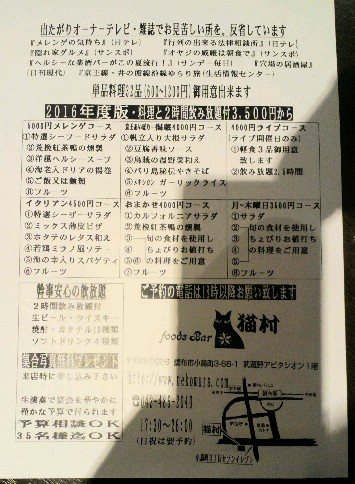 出たがりオーナーテレビ・雑誌でお見苦しい所を、反省しています
『メレンゲの気持ち』(日テレ) 『行列の出来る法律相談所』(日テレ)
『隠れ家グルメ』(サンスポ) 『オヤジの厳選は朝食で』(サンスポ)
『ヘルシーな薬酒バーがこの夏流行!』(サンデー毎日) 『穴場の居酒屋』
(日刊現代) 『京王線・井の頭線沿線ゆらり旅(生活情報センター)
単品料理33品(600~1200円)御用意出来ます
2016年度版・料理と2時間飲み放題付3,500円から
5000円メレンゲコース
①特選シーフードサラダ
②荒挽紅茶鴨の燻製
③洋風ヘルシースープ
④海老入ドリアの揚巻
⑤ご飯又は麺類
⑥フルーツ
4000円コース
①帆立入り大根サラダ
②豆腐香味ソース
③烏賊の湯野菜和え
④バリ島秘伝やきそば
⑤ガーリックライス
⑥フルーツ
4000円ライブコース
(ライブ開催日のみ)
①軽食3品御用意
致します
②飲み放題2.5時間
イタリアン4500円コース
①特選シーザーサラダ
②ミックス海皮ピザ
③ホタテのレタス和え
④若鶏ミラノ風ソテー
⑤海の幸入りスパゲティ
⑥フルーツ
おまかせ4000円コース
①カルフォルニアサラダ
②荒挽紅茶鴨の燻製
③一旬の食材を使用し
④ ちょぴりお値打ち
⑤ の料理をご用意
⑥フルーツ
月~木曜日3500円コース
①サラダ
② 旬の食材を使用し
③ ちょぴりお値打ち
④ の料理をご用意
⑥フルーツ
幹事安心の飲放題
2時間飲み放題付
生ビール・ウイスキー
焼酎・カクテル
ソフトドリンク4種類
集合写真無料プレゼント
来店時に申し込み下さい
生演奏で宴会を華やかに
僅かな予算で付られます
予算相談OK
35名様迄OK
ご予約の電話は13時以降お願い致します
foods Bar 猫村
調布市小島町3-68-1 武蔵野アビタシオン1階
17:30~26:00
(日祝は要予約)
猫村
小島町3丁目セブンイレブン